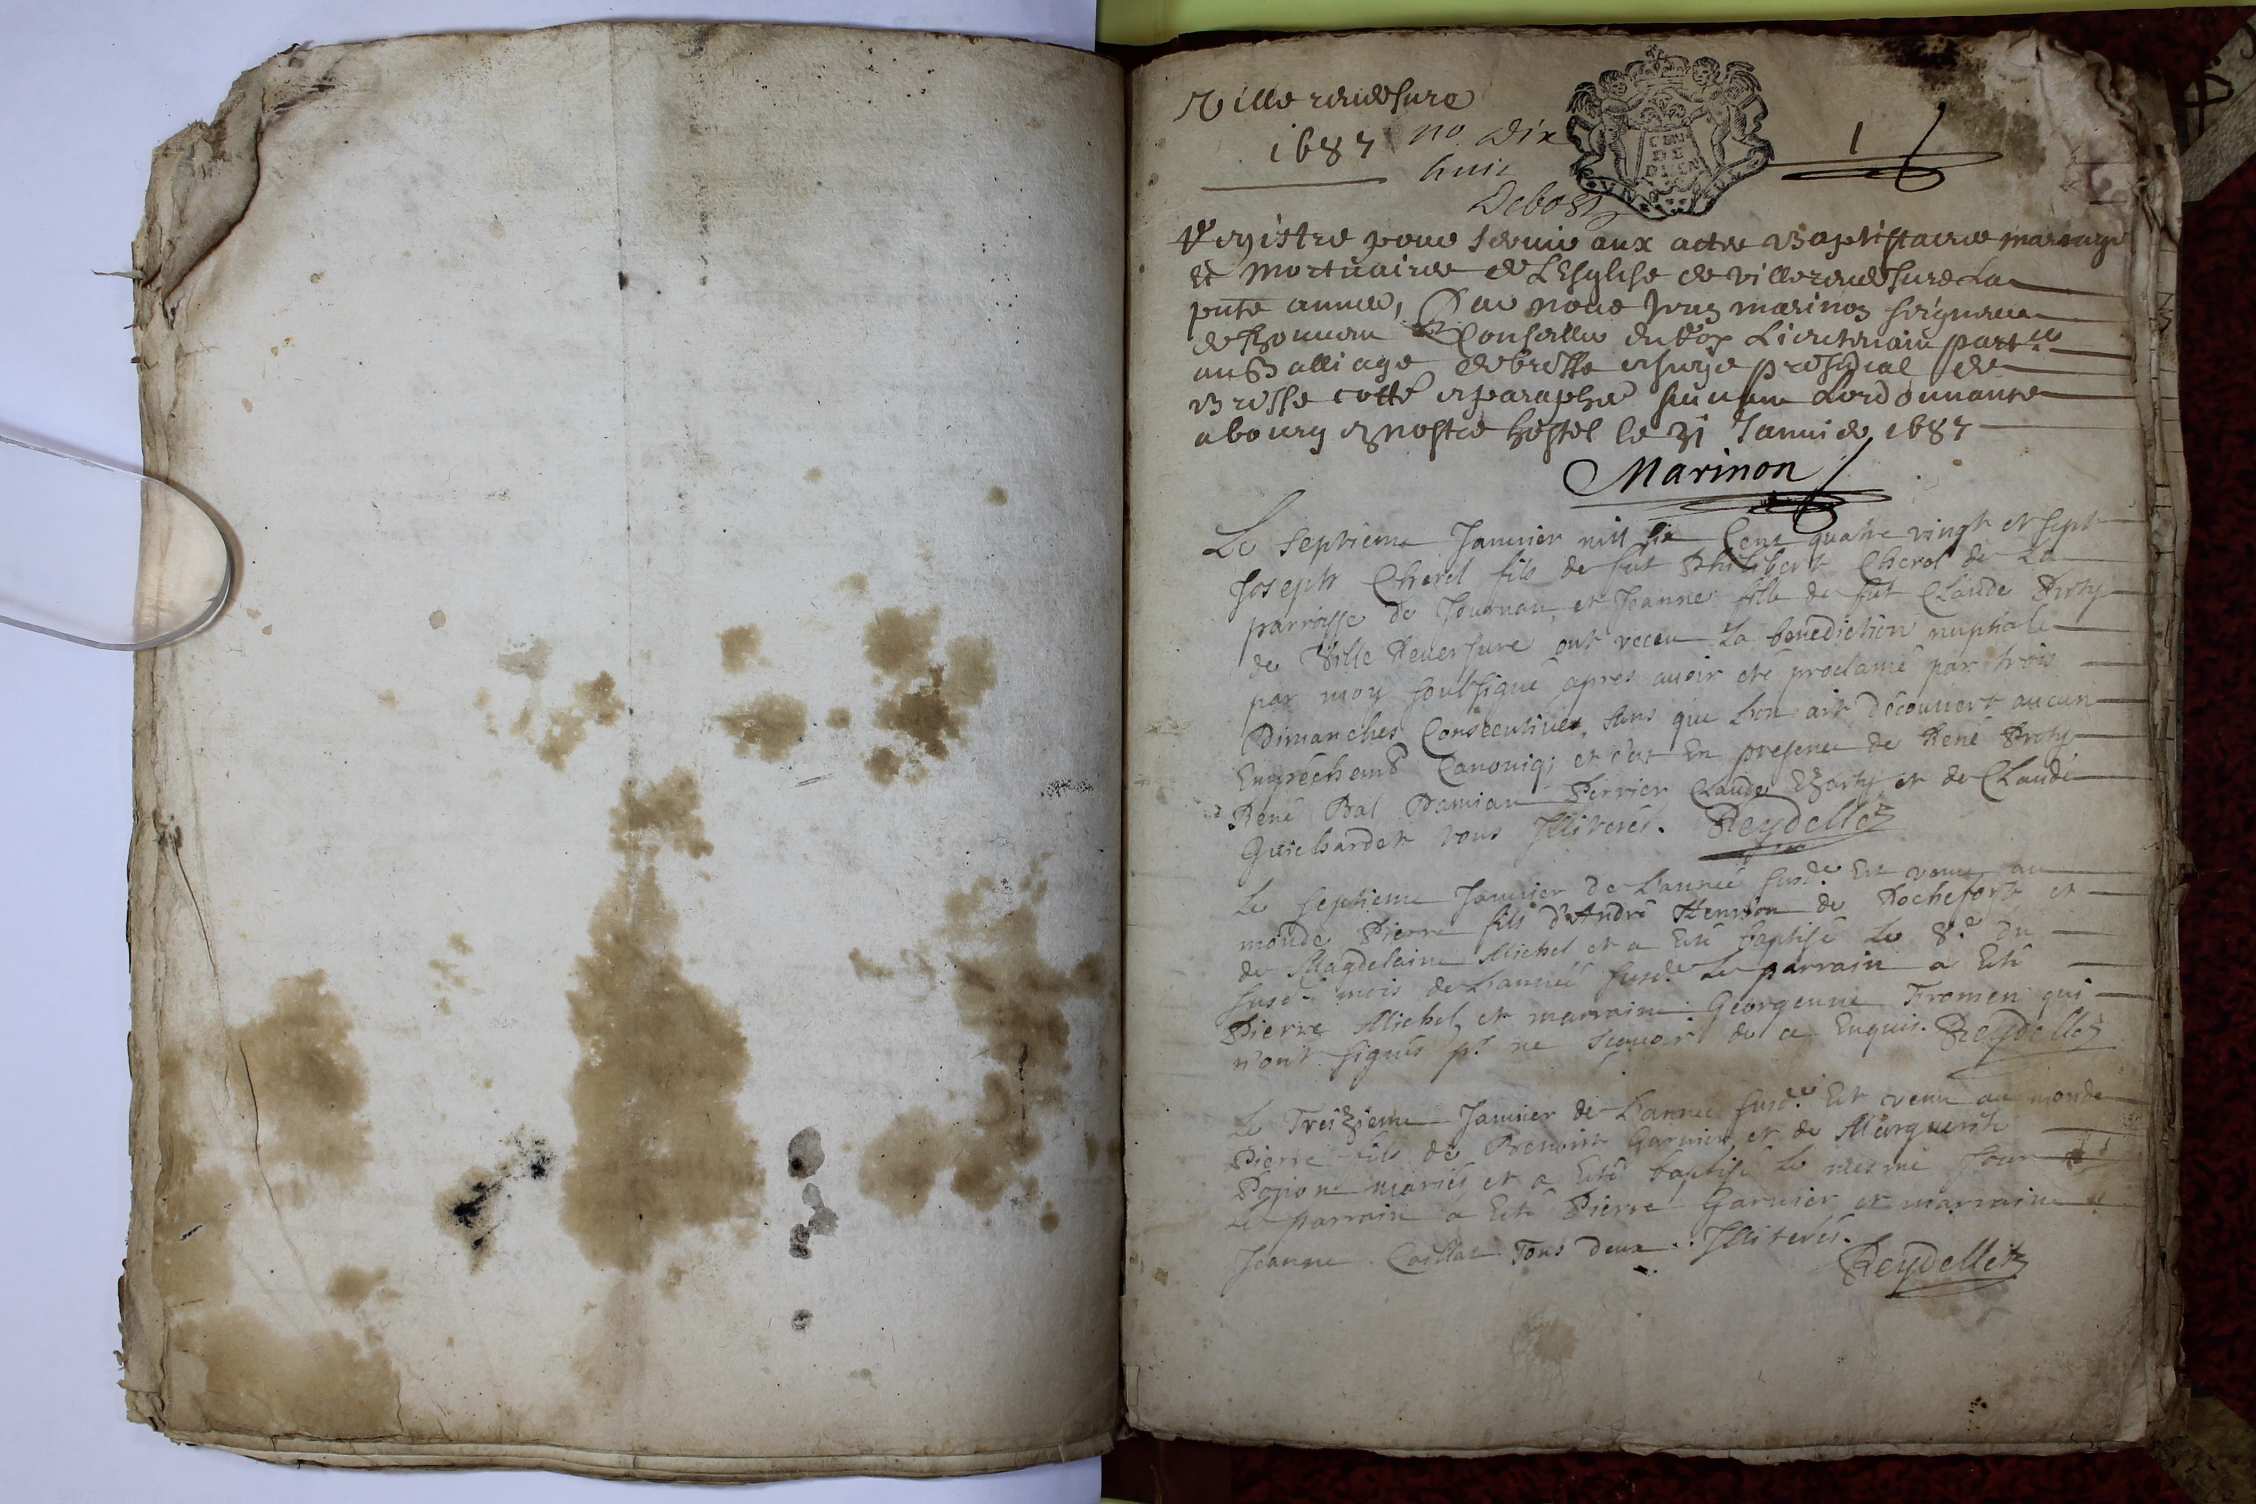 Villereuersure
1687 no. Dix
huit
Debost
1
CINQ
DE
Registre pour seruir aux actes Baptistaires mariage
et Mortuaires de LEsglise de Villereuersure La
pnte année, Par nous Jean marinon seigneur
Conseiller du Roy Lieutenant parter
au Balliage de bresse et siege presidial de
Bresse cotté et paraphé suiuant Lordonnance
a bourg en nostre hostel le 31 Januier 1687
Marinon
Le septieme Januier mil six Cent quatre vingt et sept
Joseph Cherel fils de fut Philibert Cherel de La
parroisse de Journan et Jeanne fille de fut Claude Proty
de Ville Reuersure ont receu La benediction nuptiale
par moy soubsigné apres auoir eté proclamé par trois
Dimanches Consecutiues, sans que Lon ait découuert aucun
Empéchemt Canoniq; et c'est En presence de René Proty
René Bal Damian Perrier Claude et de Claude
Guichardet tous Illiterés. Reydellet
Le septieme Januier de Lannée susd.e Est venu au
monde Pierre fils d'André Henrion de Rochefort et
de Magdelaine Michel et a Eté baptisé Le 8.e Du
susd. mois de Lannée susd.e Le parrain a Eté
Pierre Michel, et marraine Georgenne Fromen qui
n'ont signés pr. ne scauoir de ce Enquis. Reydellet
Le Treizieme Januier de Lannée susd.e Est venu au monde
Pierre fils de Benoist Garnier et de Marguerite
mariés et a Eté baptisé Le mesme Jour
Le parrain a Eté Pierre Garnier et marraine
Jeanne Tous deux Illiterés.
Reydellet